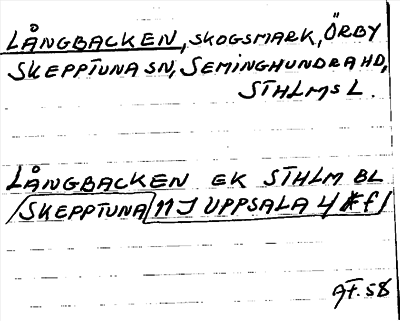 LÅNGBACKEN, SKOGSMARK, ÖRBY
SKEPPTUNA SN, SEMINGHUNDRA HD,
STHLMS L.
LÅNGBACKEN EK STHLM BL
/SKEPPTUNA/ 11 J UPPSALA 4 * f/
ÅF. 58